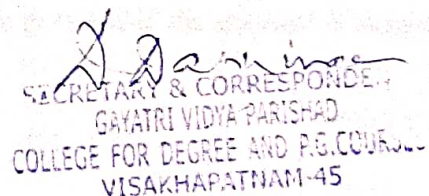 SECRETARY & CORRESPONDE
GAYATRI VIDYA PARISHAD
COLLEGE FOR DEGREE AND P.G.COURSES
VISAKHAPATNAM-45